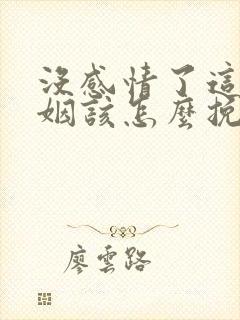 沒感情了這
姻該怎麼挽
廖雲路